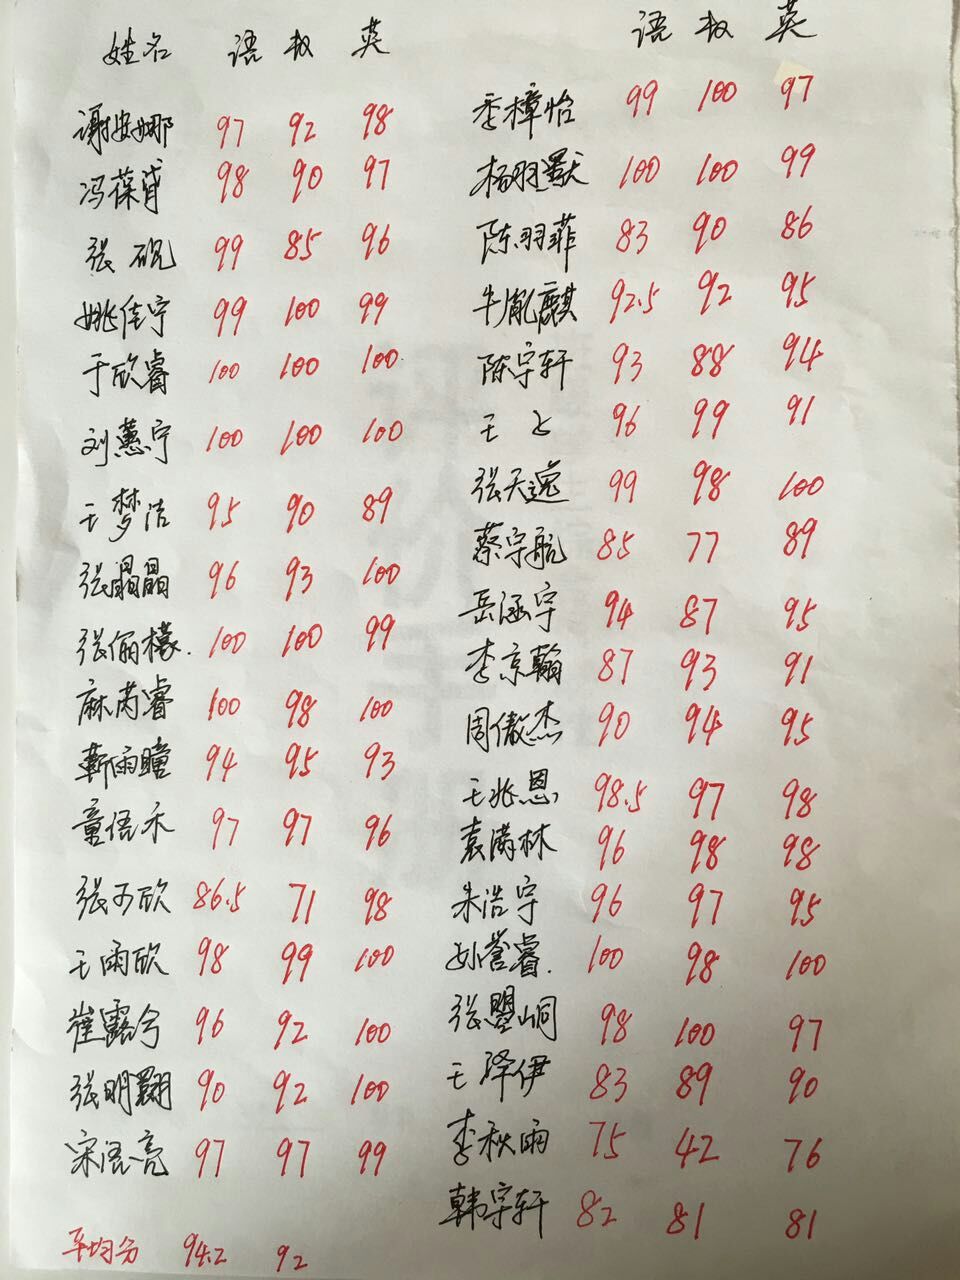 姓名 语 数 英
谢安娜 97 92 98
冯葆 98 90 97
张砚 99 85 96
姚佳宁 99 100 99
于欣睿 100 100 100
刘蕙宁 100 100 100
王梦洁 95 90 89
张晶晶 96 93 100
张俪檬 100 100 99
麻芮睿 100 98 100
靳雨瞳 94 95 93
童语禾 97 97 96
张予欣 86.5 71 98
王雨欣 98 99 100
崔露兮 96 92 100
张明翾 90 92 100
宋浯亮 97 97 99
平均分 94.2 92
语 数 英
李樟怡 99 100 97
杨羽 100 100 99
陈羽菲 83 90 86
牛胤麒 92.5 92 95
陈宇轩 93 88 94
王 96 99 91
张天逸 99 98 100
蔡宇航 85 77 89
岳涵宇 94 87 95
李京翰 87 93 91
周傲杰 90 94 95
王兆恩 98.5 97 98
袁满林 96 98 98
朱浩宇 96 97 95
孙誉睿 100 98 100
张曌峒 98 100 97
王泽伊 83 89 90
李秋雨 75 42 76
韩宇轩 82 81 81